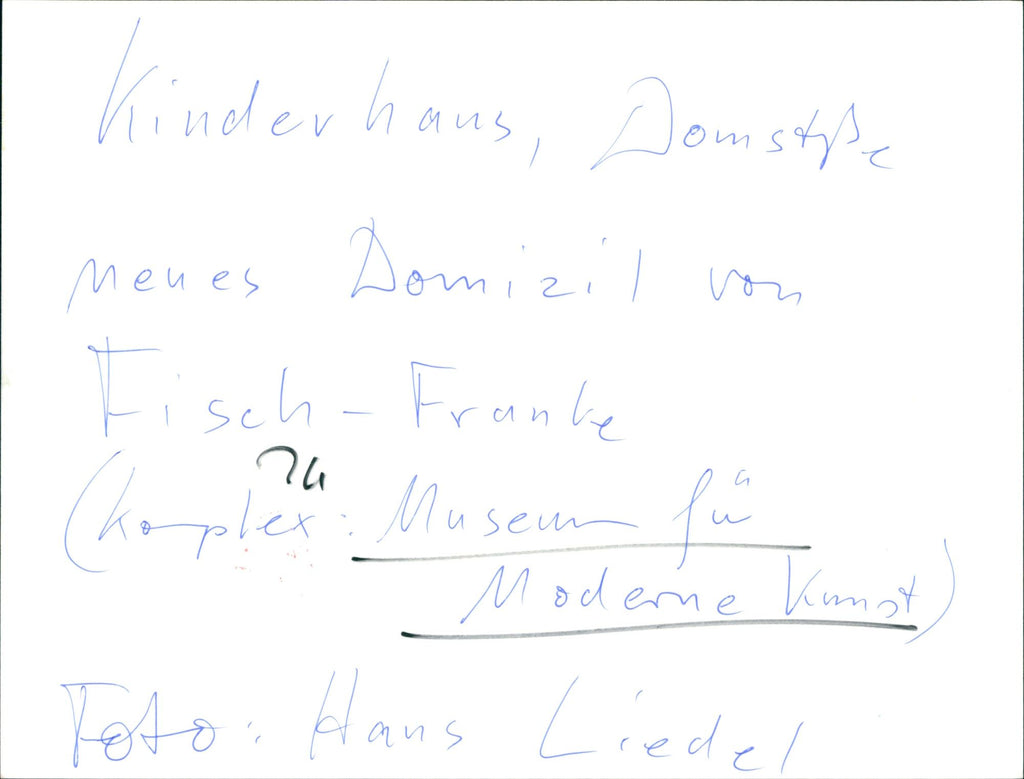 Kinderhaus, Domstße
neues Domizil von
Fisch-Franke
(Komplex: Museum für
Moderne Kunst)
Foto: Hans Liedel